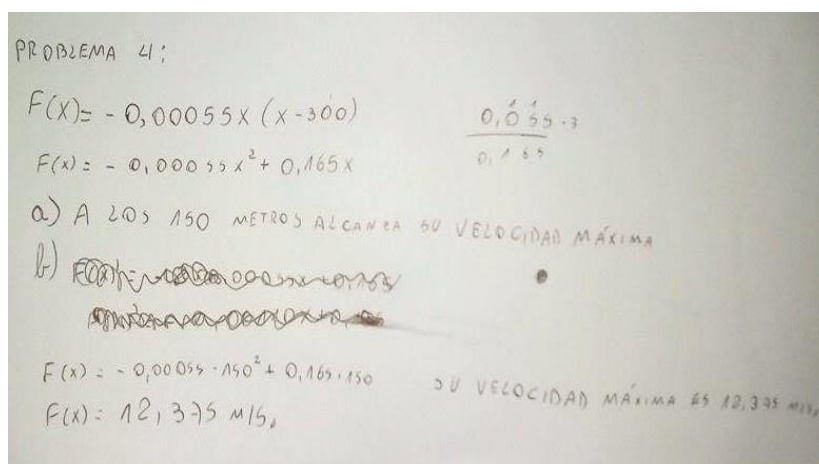 PROBLEMA 4:
F(X)= - 0,00055X (X-300)
0,055 · 3
0,165
F(x) = - 0,00055x² + 0,165x
a) A LOS 150 METROS ALCANZA SU VELOCIDAD MÁXIMA
b)
F(x) = - 0,00055 · 150² + 0,165 · 150
F(x) = 12,375 M/S.
SU VELOCIDAD MÁXIMA ES 12,375 M/S.